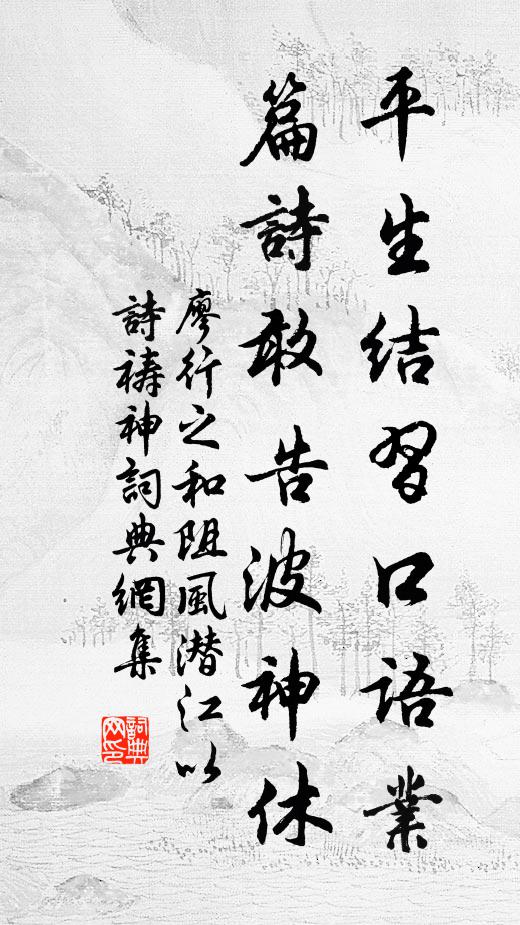 平生結習口語業
篇詩敢告波神休
廖行之和阻風潜江以
詩禱神詞典網集
詞典
网印